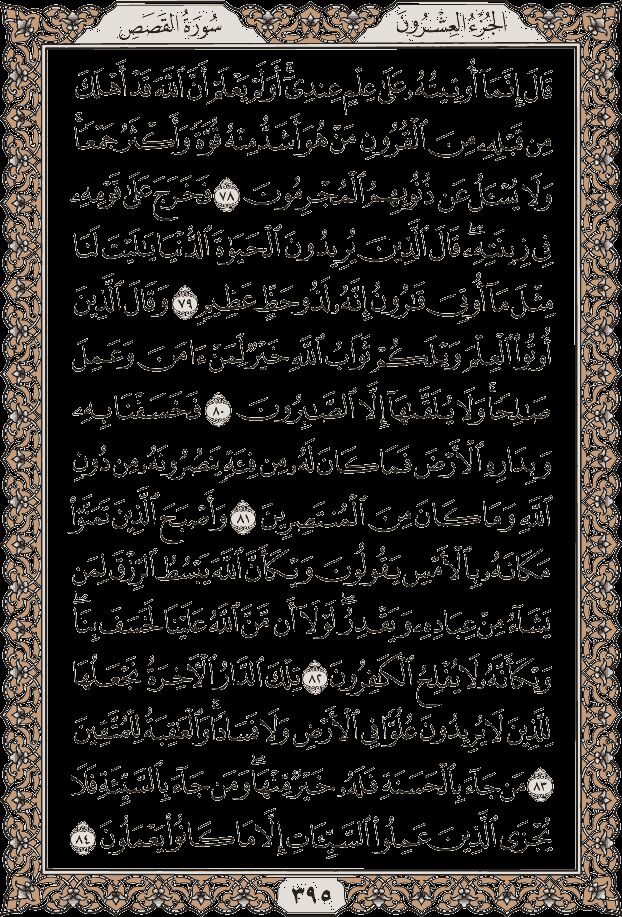 سُورَةُ القَصَصِ
الجُزْءُ العِشْرُونَ
قَالَ إِنَّمَآ أُوتِيتُهُۥ عَلَىٰ عِلْمٍ عِندِىٓ ۚ أَوَلَمْ يَعْلَمْ أَنَّ ٱللَّهَ قَدْ أَهْلَكَ
مِن قَبْلِهِۦ مِنَ ٱلْقُرُونِ مَنْ هُوَ أَشَدُّ مِنْهُ قُوَّةً وَأَكْثَرُ جَمْعًا ۚ
وَلَا يُسْـَٔلُ عَن ذُنُوبِهِمُ ٱلْمُجْرِمُونَ ٧٨ فَخَرَجَ عَلَىٰ قَوْمِهِۦ
فِى زِينَتِهِۦ ۖ قَالَ ٱلَّذِينَ يُرِيدُونَ ٱلْحَيَوٰةَ ٱلدُّنْيَا يَـٰلَيْتَ لَنَا
مِثْلَ مَآ أُوتِىَ قَـٰرُونُ إِنَّهُۥ لَذُو حَظٍّ عَظِيمٍ ٧٩ وَقَالَ ٱلَّذِينَ
أُوتُوا۟ ٱلْعِلْمَ وَيْلَكُمْ ثَوَابُ ٱللَّهِ خَيْرٌ لِّمَنْ ءَامَنَ وَعَمِلَ
صَـٰلِحًا وَلَا يُلَقَّىٰهَآ إِلَّا ٱلصَّـٰبِرُونَ ٨٠ فَخَسَفْنَا بِهِۦ
وَبِدَارِهِ ٱلْأَرْضَ فَمَا كَانَ لَهُۥ مِن فِئَةٍ يَنصُرُونَهُۥ مِن دُونِ
ٱللَّهِ وَمَا كَانَ مِنَ ٱلْمُنتَصِرِينَ ٨١ وَأَصْبَحَ ٱلَّذِينَ تَمَنَّوْا۟
مَكَانَهُۥ بِٱلْأَمْسِ يَقُولُونَ وَيْكَأَنَّ ٱللَّهَ يَبْسُطُ ٱلرِّزْقَ لِمَن
يَشَآءُ مِنْ عِبَادِهِۦ وَيَقْدِرُ ۖ لَوْلَآ أَن مَّنَّ ٱللَّهُ عَلَيْنَا لَخَسَفَ بِنَا ۖ
وَيْكَأَنَّهُۥ لَا يُفْلِحُ ٱلْكَـٰفِرُونَ ٨٢ تِلْكَ ٱلدَّارُ ٱلْـَٔاخِرَةُ نَجْعَلُهَا
لِلَّذِينَ لَا يُرِيدُونَ عُلُوًّا فِى ٱلْأَرْضِ وَلَا فَسَادًا ۚ وَٱلْعَـٰقِبَةُ لِلْمُتَّقِينَ
٨٣ مَن جَآءَ بِٱلْحَسَنَةِ فَلَهُۥ خَيْرٌ مِّنْهَا ۖ وَمَن جَآءَ بِٱلسَّيِّئَةِ فَلَا
يُجْزَى ٱلَّذِينَ عَمِلُوا۟ ٱلسَّيِّـَٔاتِ إِلَّا مَا كَانُوا۟ يَعْمَلُونَ ٨٤
٣٩٥